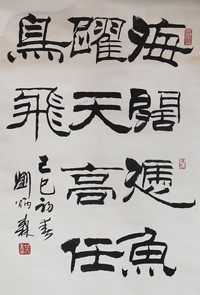 海闊憑魚
躍天高任
鳥飛
己巳初春
劉炳森